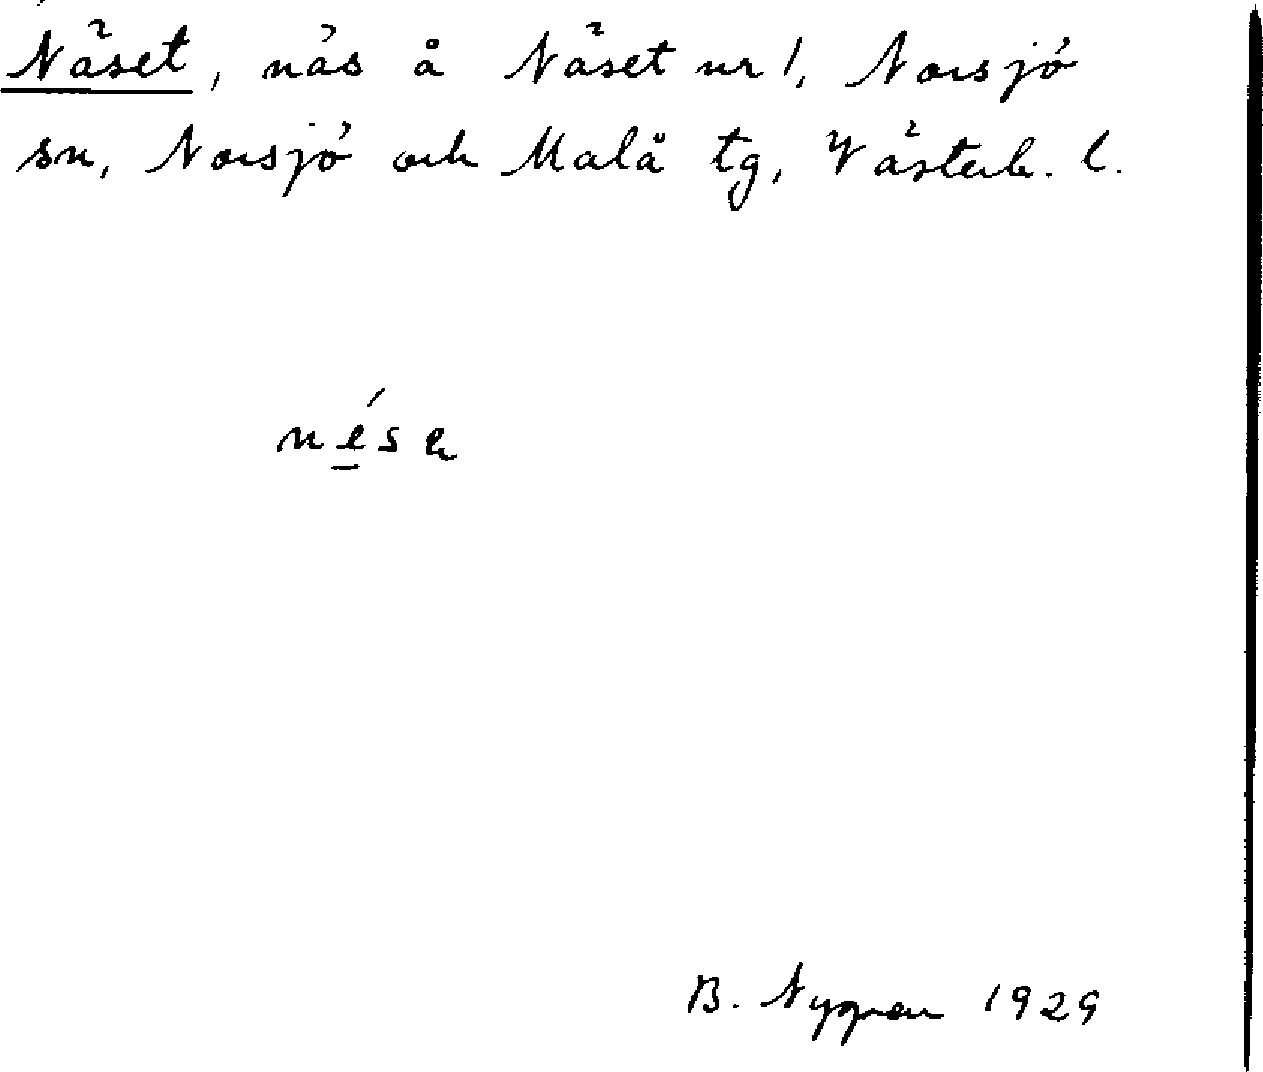 Näset, näs å Näset nr 1, Norsjö
sn, Norsjö och Malå tg, Västerb. l.
nése
B. Nygren 1929